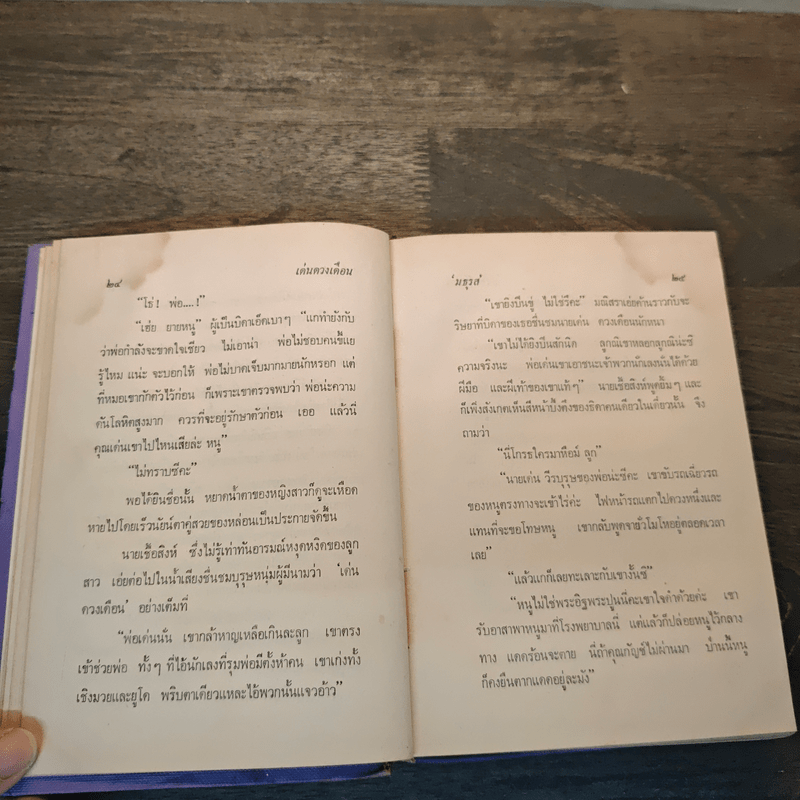 ๒๔
เด่นดวงเดือน
"โธ่! พ่อ....!"
"เฮ่ย ยายหนู" ผู้เป็นบิดาเอ็ดเบาๆ "แกทำยังกับ
ว่าพ่อกำลังจะขาดใจเชียว ไม่เอาน่า พ่อไม่ชอบคนขี้แย
รู้ไหม แน่ะ จะบอกให้ พ่อไม่บาดเจ็บมากมายนักหรอก แต่
ที่หมอเขากักตัวไว้ก่อน ก็เพราะเขาตรวจพบว่า พ่อน่ะความ
ดันโลหิตสูงมาก ควรที่จะอยู่รักษาตัวก่อน เออ แล้วนี่
คุณเด่นเขาไปไหนเสียล่ะ หนู"
"ไม่ทราบซีคะ"
พอได้ยินชื่อนั้น หยาดน้ำตาของหญิงสาวก็ดูจะเหือด
หายไปโดยเร็วนัยน์ตาคู่สวยของหล่อนเป็นประกายจัดขึ้น
นายเชื้อสิงห์ ซึ่งไม่รู้เท่าทันอารมณ์หงุดหงิดของลูก
สาว เอ่ยต่อไปในน้ำเสียงชื่นชมบุรุษหนุ่มผู้มีนามว่า 'เด่น
ดวงเดือน' อย่างเต็มที่
"พ่อเด่นนั่น เขากล้าหาญเหลือเกินละลูก เขาตรง
เข้าช่วยพ่อ ทั้งๆ ที่ไอ้นักเลงที่รุมพ่อมีตั้งห้าคน เขาเก่งทั้ง
เชิงมวยและยูโด พริบตาเดียวแหละไอ้พวกนั้นแจวอ้าว"
'มธุรส'
๒๕
"เขายิงปืนขู่ ไม่ใช่รึคะ" มณิสราเอ่ยค้านราวกับจะ
ริษยาที่บิดาของเธอชื่นชมนายเด่น ดวงเดือนนักหนา
"เขาไม่ได้ยิงปืนสักนิด ลูกณิเขาหลอกลูกณิน่ะซี
ความจริงนะ พ่อเด่นเขาเอาชนะเจ้าพวกนักเลงนั่นได้ด้วย
ฝีมือ และฝีเท้าของเขาแท้ๆ" นายเชื้อสิงห์พูดยิ้มๆ และ
ก็เพิ่งสังเกตเห็นสีหน้าบึ้งตึงของธิดาคนเดียวในเดี๋ยวนั้น จึง
ถามว่า
"นี่โกรธใครมาหือม์ ลูก"
"นายเด่น วีรบุรุษของพ่อน่ะซีคะ เขาขับรถเฉี่ยวรถ
ของหนูตรงทางจะเข้าไร่ค่ะ ไฟหน้ารถแตกไปดวงหนึ่งและ
แทนที่จะขอโทษหนู เขากลับพูดจายั่วโมโหอยู่ตลอดเวลา
เลย"
"แล้วแกก็เลยทะเลาะกับเขางั้นซิ"
"หนูไม่ใช่พระอิฐพระปูนนี่คะเขาใจดำด้วยค่ะ เขา
รับอาสาพาหนูมาที่โรงพยาบาลนี่ แต่แล้วก็ปล่อยหนูไว้กลาง
ทาง แดดร้อนจะตาย นี่ถ้าคุณกัญช์ไม่ผ่านมา ป่านนี้หนู
ก็คงยืนตากแดดอยู่ละมัง"